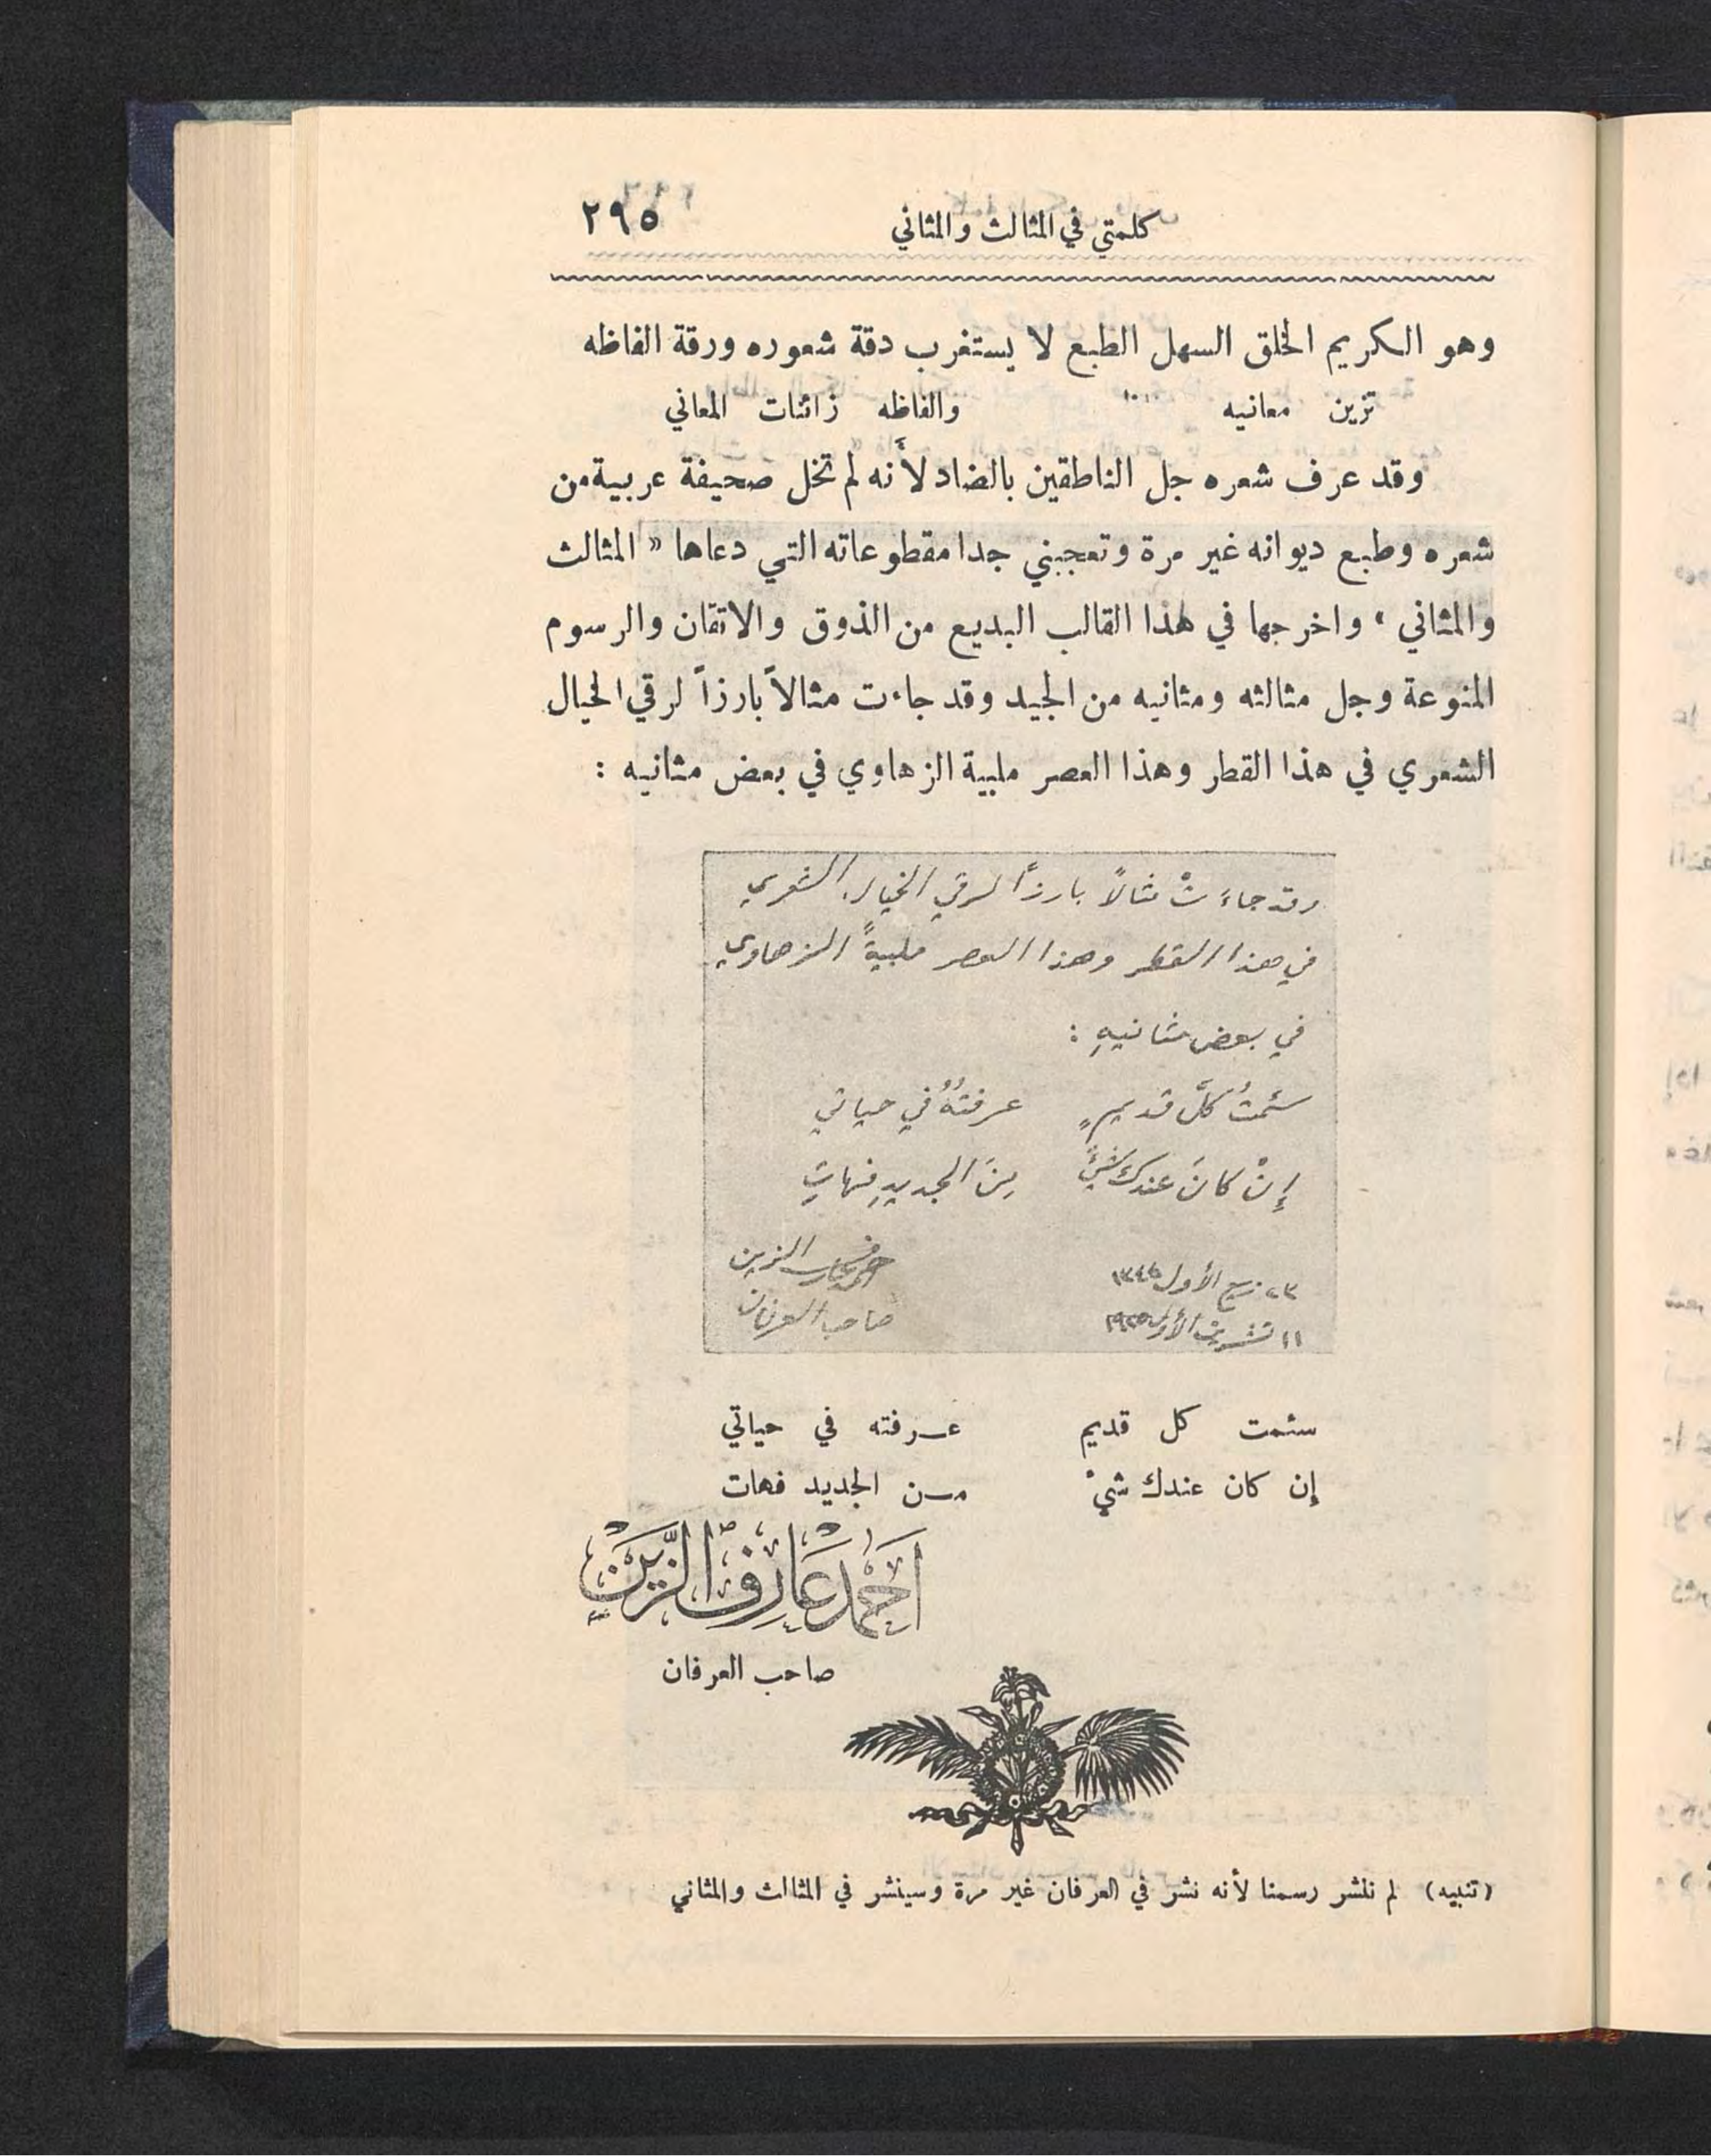 كلمتي في المثالث والمثاني ٢٩٥
وهو الكريم الخلق السهل الطبع لا يستغرب دقة شعوره ورقة الفاظه
تزين معانيه والفاظه زائنات المعاني
وقد عرف شعره جل الناطقين بالضاد لأَنه لم تخل صحيفة عربية من
شعره وطبع ديوانه غير مرة وتعجبني جدا مقطوعاته التي دعاها « المثالث
والمثاني » واخرجها في هذا القالب البديع من الذوق والاتقان والرسوم
المنوعة وجل مثالثه ومثانيه من الجيد وقد جاءت مثالاً بارزاً لرقي الخيال
الشعري في هذا القطر وهذا العصر ملبية الزهاوي في بعض مثانيه :
وقد جاءَتْ مثالاً بارزاً لرقي الخيال الشعري
في هذا القطر وهذا العصر ملبيةً الزهاوي
في بعض مثانيهِ :
سئمتُ كلَّ قديمٍ عرفتُهُ في حياتي
إِنْ كانَ عندك شيءٌ مِنَ الجديدِ فهاتِ
٢٣ ربيع الأول ١٣٤٤ احمد عارف الزين
١١ تشرين الأول ١٩٢٥ صاحب العرفان
سئمت كل قديم عرفته في حياتي
إن كان عندك شيْ من الجديد فهات
أَحْمَد عَارِف الزَّيْن
صاحب العرفان
(تنبيه) لم ننشر رسمنا لأنه نشر في العرفان غير مرة وسينشر في المثالث والمثاني